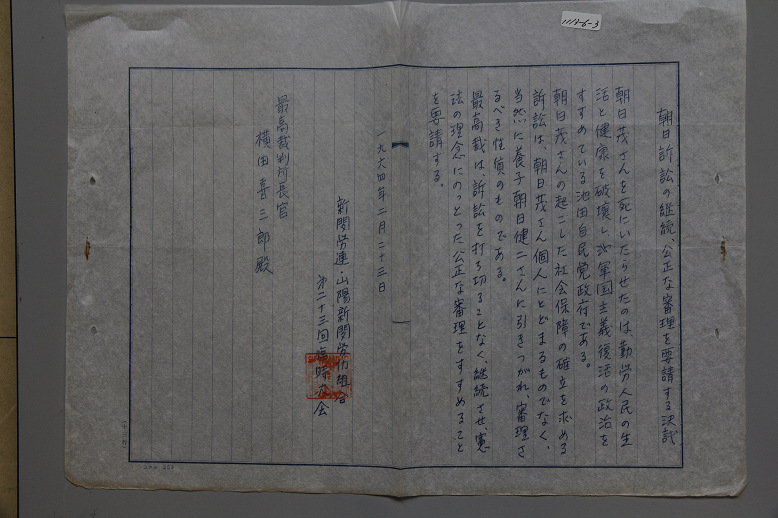 1118-6-3
朝日訴訟の継続、公正な審理を要請する決議
朝日茂さんを死にいたらせたのは、勤労人民の生
活と健康を破壊し、軍国主義復活の政治を
すすめている池田自民党政府である。
朝日茂さんの起こした社会保障の確立を求める
訴訟は、朝日茂さん個人にとどまるものでなく、
当然に養子朝日健二さんに引きつがれ、審理さ
るべき性質のものである。
最高裁は、訴訟を打ち切ることなく、継続させ、憲
法の理念にのっとった公正な審理をすすめること
を要請する。
一九六四年二月二十三日
新聞労連・山陽新聞労仂組合
第二十三回臨時大会
最高裁判所長官
横田喜三郎殿